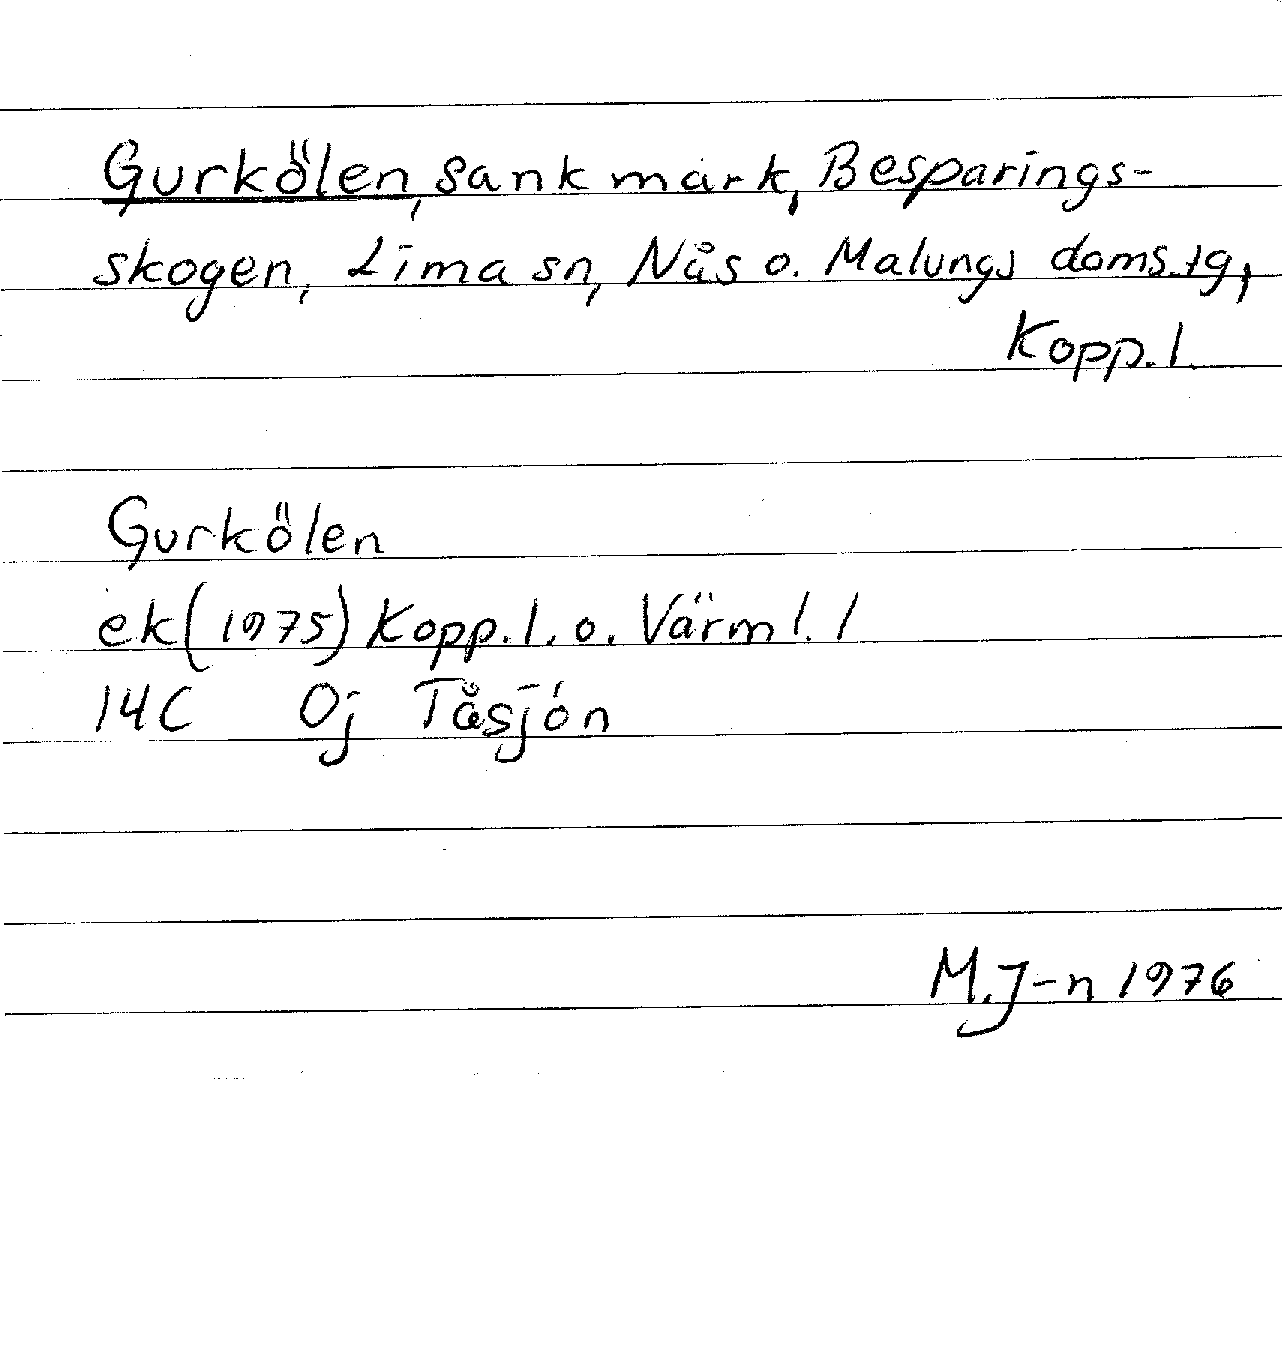 Gurkölen, sank mark, Besparings-
skogen, Lima sn, Nås o. Malungs doms.tg,
Kopp. l.
Gurkölen
ek (1975) Kopp. l. o. Värml. l
14C Oj Tåsjön
M.J-n 1976